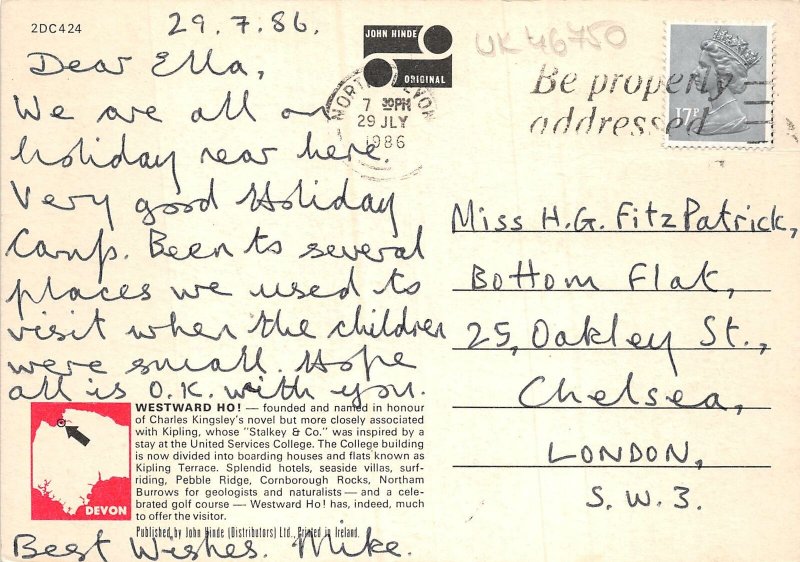 2DC424
29.7.86.
JOHN HINDE
ORIGINAL
UK 46750
Dear Ella,
We are all on
holiday near here.
Very good Holiday
Camp. Been to several
places we used to
visit when the children
were small. Hope
all is O.K. with you.
Best Wishes. Mike.
7 30PM
29 JLY
1986
Be properly
addressed
17P
Miss H.G. FitzPatrick,
Bottom Flat,
25, Oakley St.,
Chelsea,
LONDON,
S.W.3.
WESTWARD HO! — founded and named in honour
of Charles Kingsley's novel but more closely associated
with Kipling, whose "Stalkey & Co." was inspired by a
stay at the United Services College. The College building
is now divided into boarding houses and flats known as
Kipling Terrace. Splendid hotels, seaside villas, surf-
riding, Pebble Ridge, Cornborough Rocks, Northam
Burrows for geologists and naturalists — and a cele-
brated golf course — Westward Ho! has, indeed, much
to offer the visitor.
DEVON
Published by John Hinde (Distributors) Ltd., Printed in Ireland.